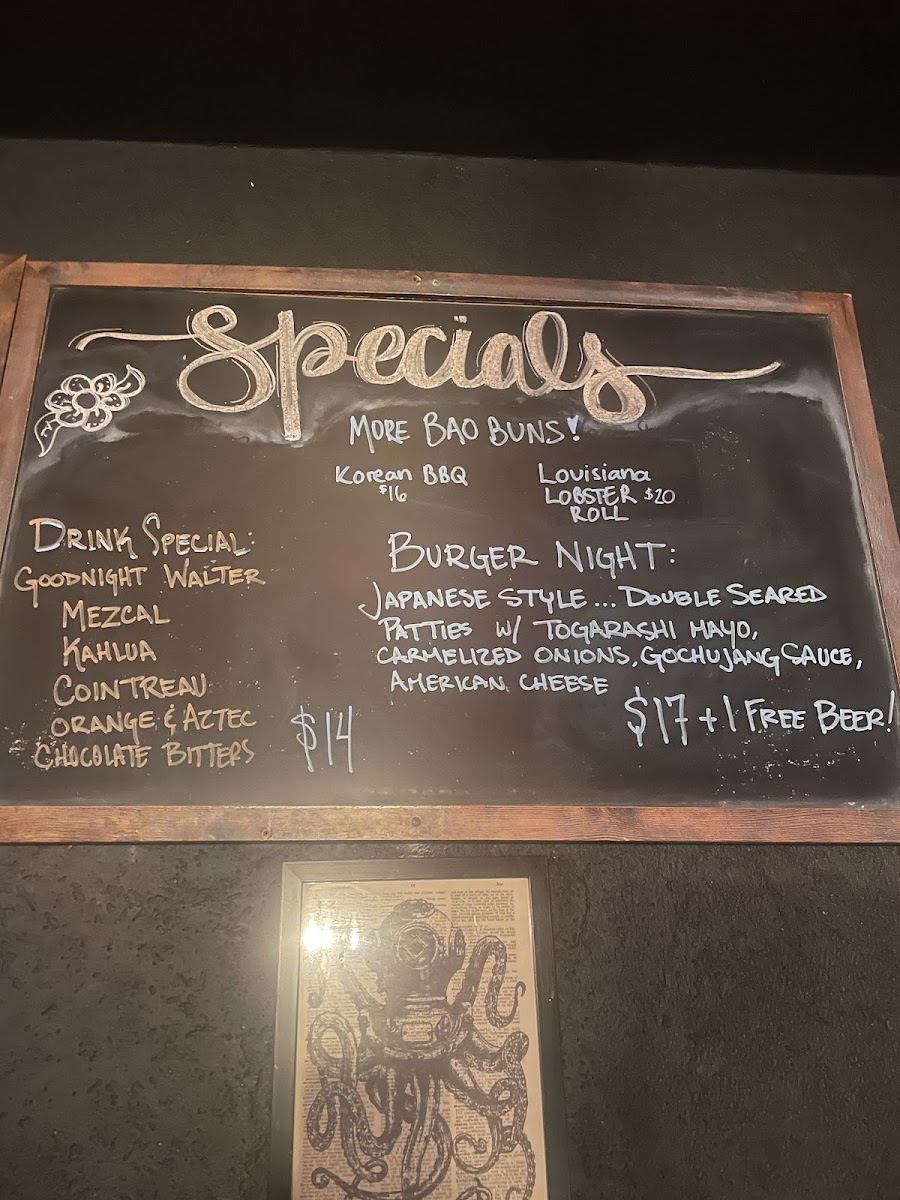 Specials
MORE BAO BUNS!
Korean BBQ
$16
Louisiana
LOBSTER $20
ROLL
DRINK SPECIAL:
GOODNIGHT WALTER
MEZCAL
KAHLUA
COINTREAU
ORANGE & AZTEC
CHOCOLATE BITTERS
$14
BURGER NIGHT:
JAPANESE STYLE... DOUBLE SEARED
PATTIES W/ TOGARASHI MAYO,
CARMELIZED ONIONS, GOCHUJANG SAUCE,
AMERICAN CHEESE
$17 + 1 FREE BEER!